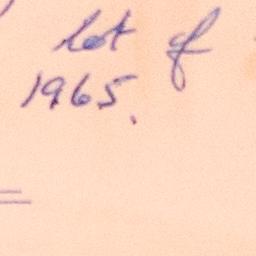 hot of
1965.